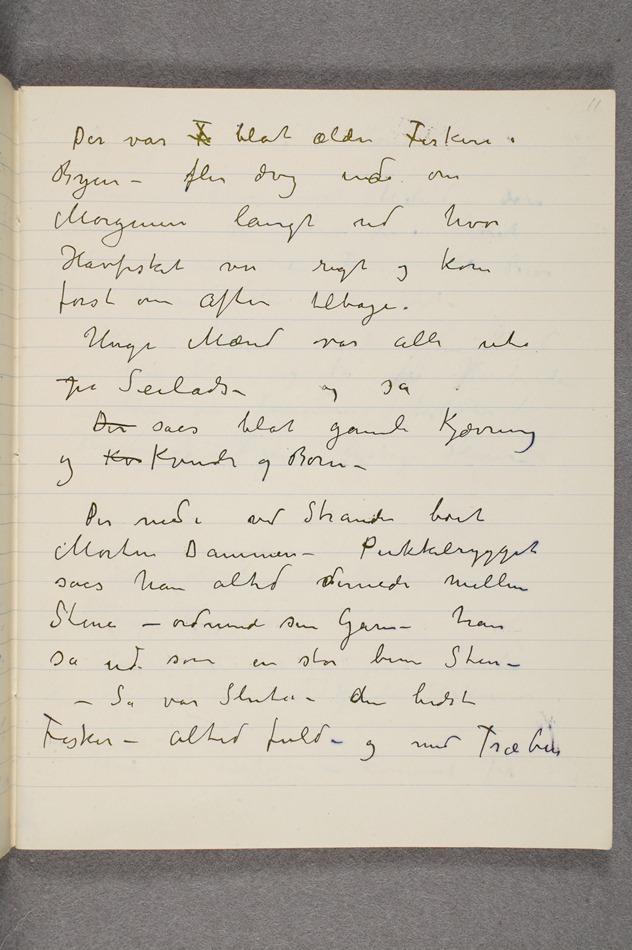 11
Der var F blot ældre Fiskere i
Byen – der drog ud om
Morgenen langt ud hvor
Havfisket var rigt og kom
først om Aften tilbage.
Unge Mænd var alle ute
på Seilads – og så
Der saes blot gamle Kjærring
og Kv Kvinder og Børn –
Der nede ved Stranden boet
Morten Dammen – Pukkelrygget
saes han altid dernede mellem
Stene – ordnende sine Garn – han
så ud som en stor brun Sten –
– Så var Sluta – den bedste
Fisker – altid fuld – og med Træben